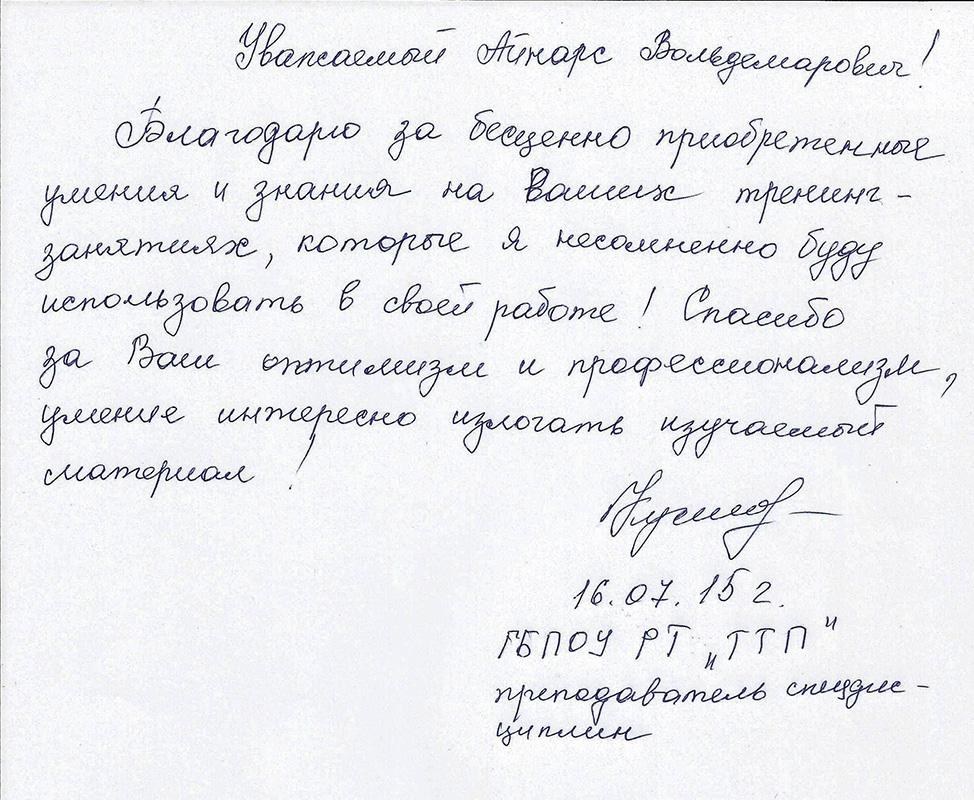 Уважаемый Айнарс Вольдемарович!
Благодарю за бесценно приобретенные
умения и знания на Ваших тренинг-
занятиях, которые я несомненно буду
использовать в своей работе! Спасибо
за Ваш оптимизм и профессионализм,
умение интересно излогать изучаемый
материал!
16.07.15 г.
ГБПОУ РТ „ТТП"
преподаватель спецдис-
циплин